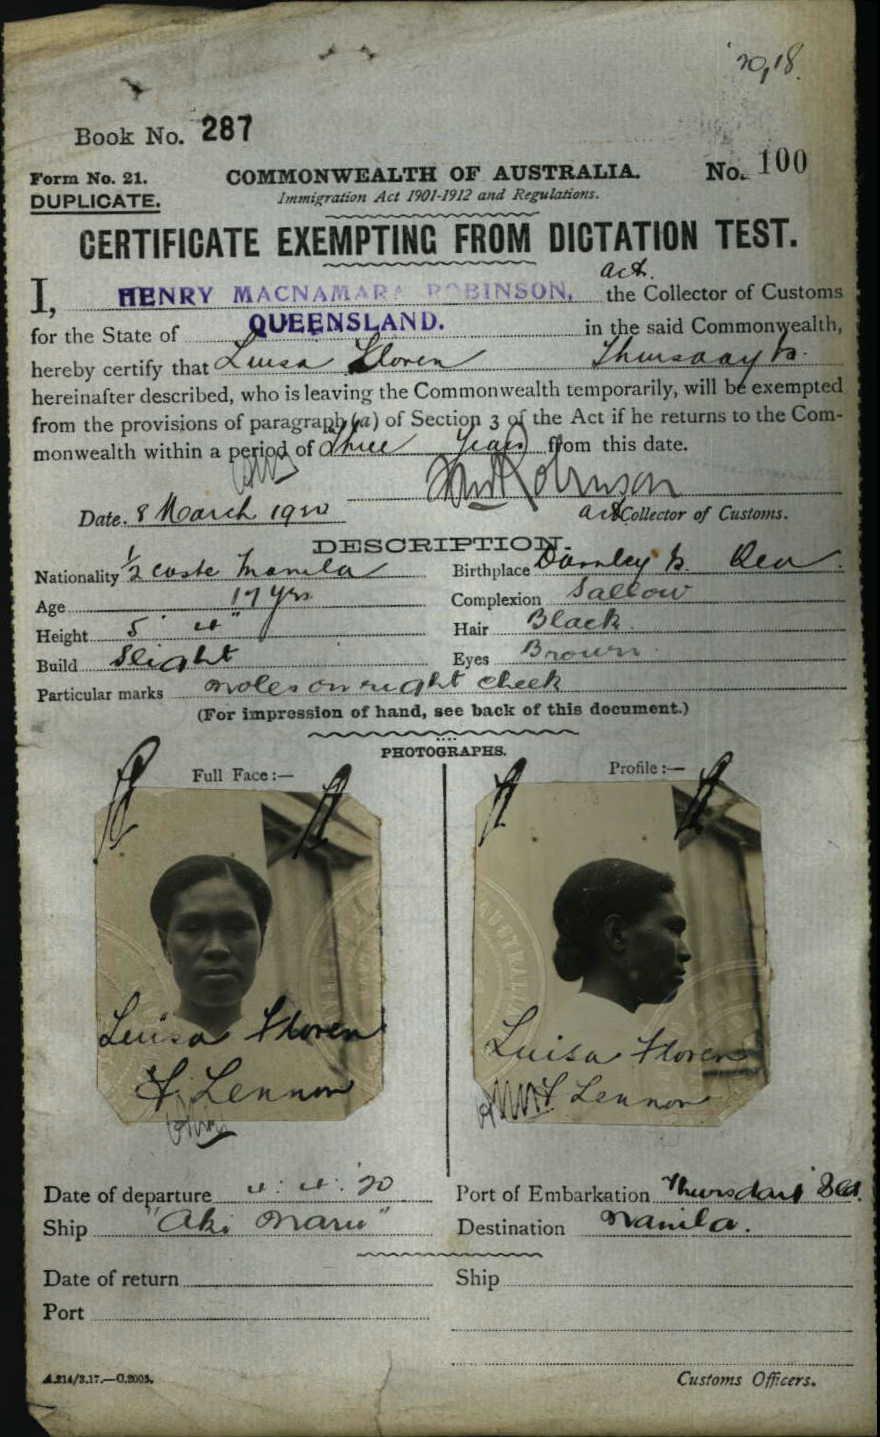 20/18
Book No. 287
Form No. 21. COMMONWEALTH OF AUSTRALIA. No. 100
DUPLICATE. Immigration Act 1901-1912 and Regulations.
CERTIFICATE EXEMPTING FROM DICTATION TEST.
act.
I, HENRY MACNAMARA ROBINSON, the Collector of Customs
for the State of QUEENSLAND. in the said Commonwealth,
hereby certify that Luisa Floren Thursday Is.
hereinafter described, who is leaving the Commonwealth temporarily, will be exempted
from the provisions of paragraph (a) of Section 3 of the Act if he returns to the Com-
monwealth within a period of three years from this date.
Robinson
Date. 8 March 1920 act Collector of Customs.
DESCRIPTION.
Nationality 1/2 caste Manila Birthplace Darnley Is.
Age 17 yrs Complexion Sallow
Height 5' 4" Hair Black
Build Slight Eyes Brown
Particular marks moles on right cheek
(For impression of hand, see back of this document.)
PHOTOGRAPHS.
Full Face:— Profile:—
AUSTRALIA
Luisa Floren Luisa Floren
F. Lennon F Lennon
Date of departure 4. 4. '20 Port of Embarkation Thursday Isld.
Ship "Aki Maru" Destination Manila.
Date of return Ship
Port
A.214/3.17.—C.2005. Customs Officers.